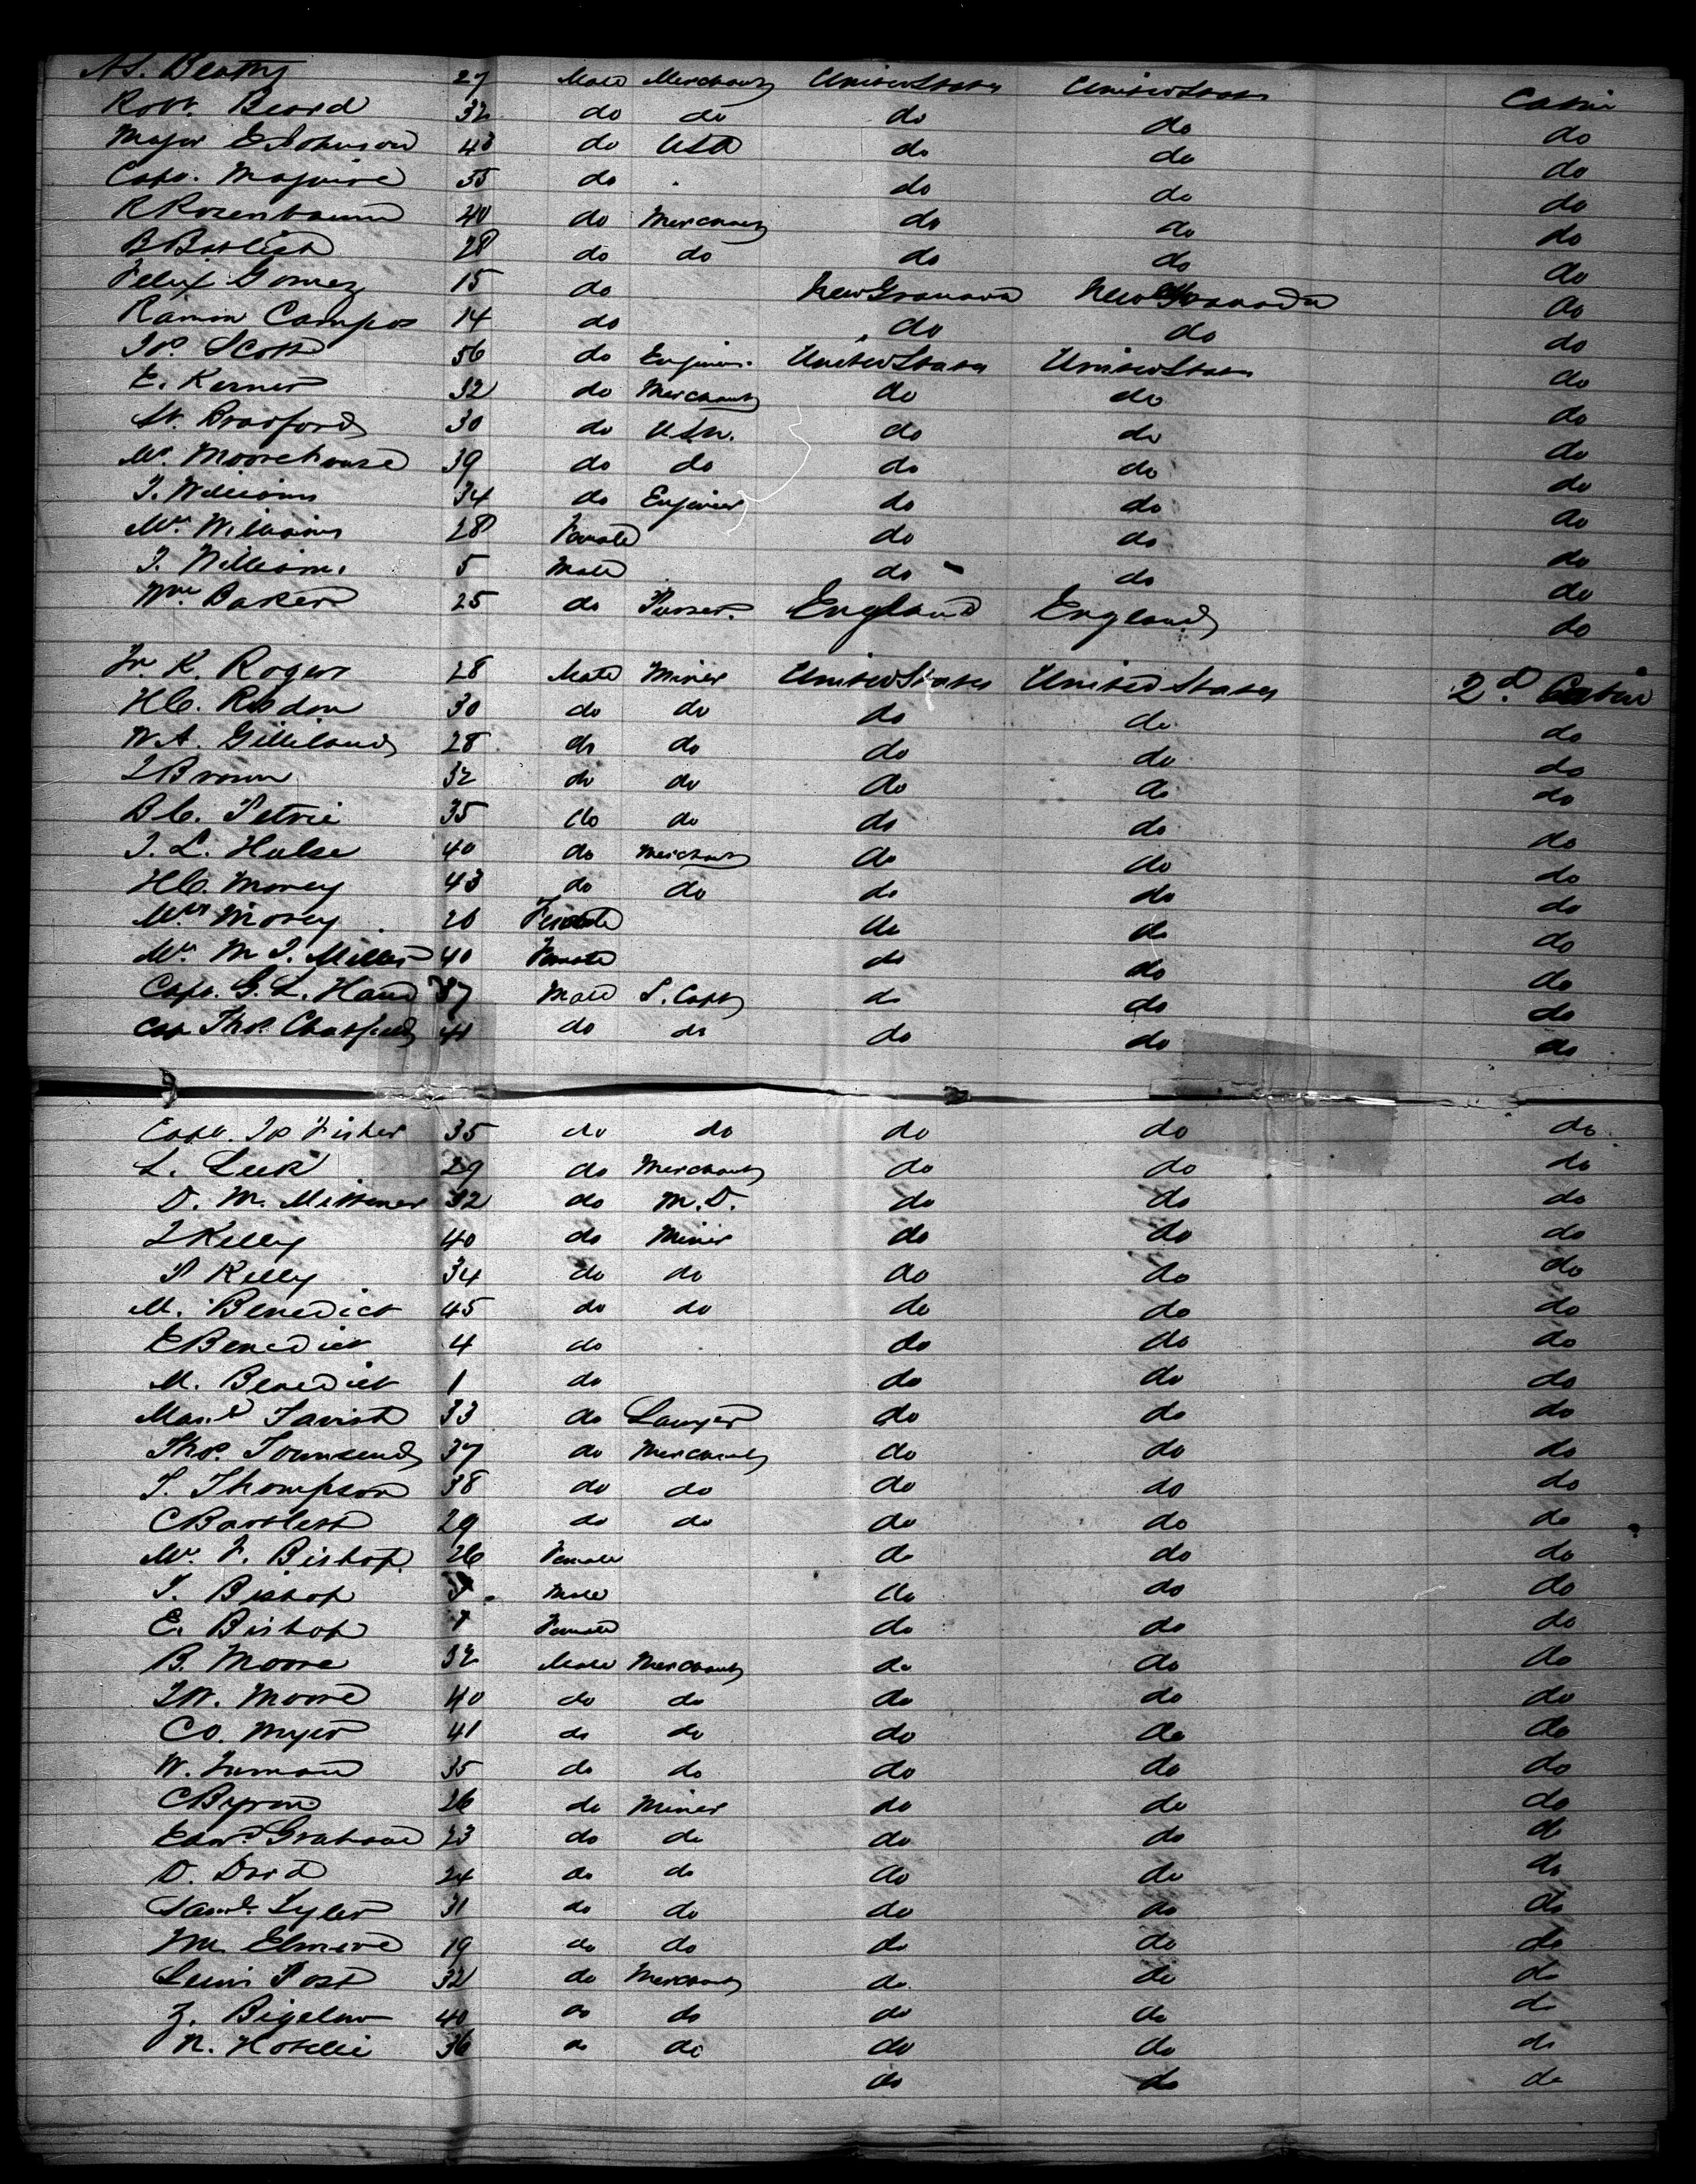 Beatty 27 Male Merchant United States United States Cabin
Robt. Beard 32 do do do do do
Major E Johnson 43 do USA do do do
Capt. Maguire 35 do do do do
R Rosenbaum 40 do Merchant do do do
B 28 do do do do do
Felix Gomez 15 do New Granada New Granada do
Ramon Campos 14 do do do do
Jos. Scott 56 do Engineer. United States United States do
E. Kerner 32 do Merchant do do do
Lt. Bradford 30 do U.S.N. do do do
Mr. Moorehouse 39 do do do do do
J. Williams 34 do Engineer do do do
Mrs. Williams 28 Female do do do
J. Williams 5 Male do do do
Wm. Baker 25 do Purser. England England do
K. Rogers 28 Male Miner United States United States 2d. Cabin
H.C. 30 do do do do do
W.A. Gilliland 28 do do do do do
J Brown 32 do do do do do
B C. Petrie 35 do do do do do
J. L. Hulse 40 do Merchant do do do
H.C. Morey 43 do do do do do
Mrs Morey 26 Female do do do
Mrs. M J. Miller 40 Female do do do
Capt. G. L. Hand 37 Male S. Capt do do do
Cap Thos. Chatfield 41 do do do do do
Capt. Jos Fisher 35 do do do do do
L. Leek 29 do Merchant do do do
D. M. 32 do M.D. do do do
J Kelly 40 do Miner do do do
P Kelly 34 do do do do do
M. Benedict 45 do do do do do
E Benedict 4 do do do do
M. Benedict 1 do do do do
33 do Lawyer do do do
Thos. Townsend 37 do Merchant do do do
J. Thompson 38 do do do do do
C Bartlett 29 do do do do do
Mrs. F. Bishop. 26 Female do do do
J. Bishop Male do do do
E. Bishop Female do do do
B. Moore 32 Male Merchant do do do
J W. Moore 40 do do do do do
C O. Myer 41 do do do do do
W. 35 do do do do do
C Byron 26 do Miner do do do
Edwd. Graham 23 do do do do do
D. 24 do do do do do
Saml. Tyler 31 do do do do do
Wm Elmore 19 do do do do do
Lewis Post 32 do Merchant do do do
Z. Bigelow 40 do do do do do
N. 36 do do do do do
do do do